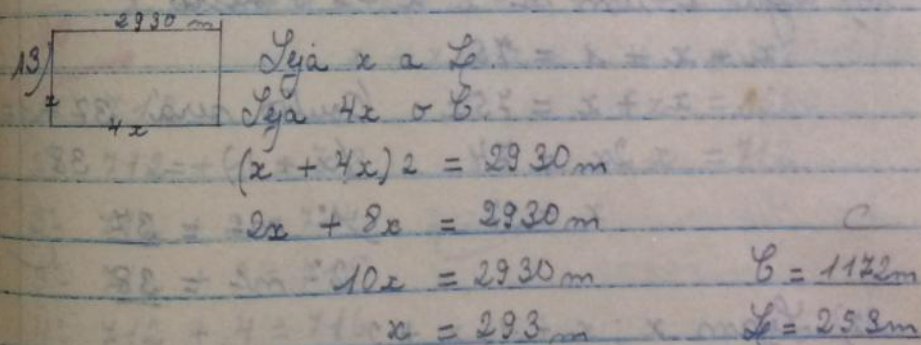 2930 m
13)
x
4x
Seja x a L.
Seja 4x o C.
(x + 4x) 2 = 2930 m
2x + 8x = 2930 m
10x = 2930 m
C = 1172 m
x = 293 m
L = 293 m